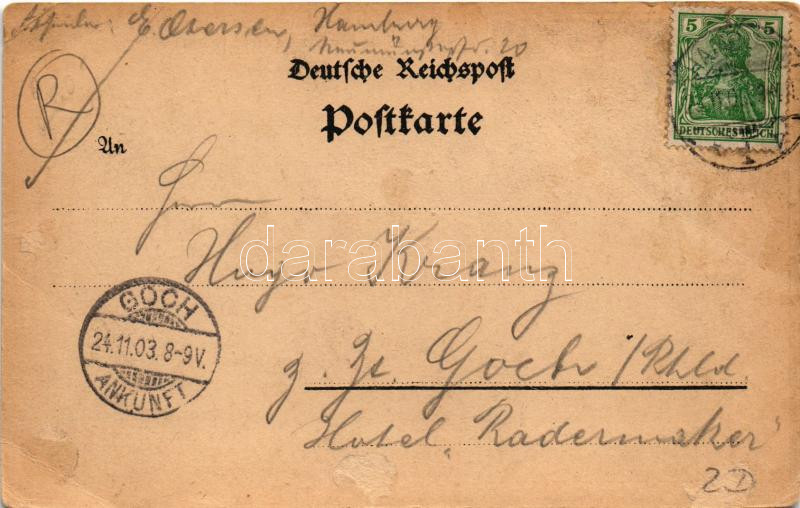 Absender: E. Petersen, Hamburg
Neumünsterstr. 20
Deutsche Reichspost
Postkarte
R
An
5 5
DEUTSCHES REICH
Herrn
Hugo Kranz
darabanth
GOCH
24.11.03. 8-9V.
ANKUNFT
z. Zt. Goch / Rhld.
Hotel „Radermaker“
2D